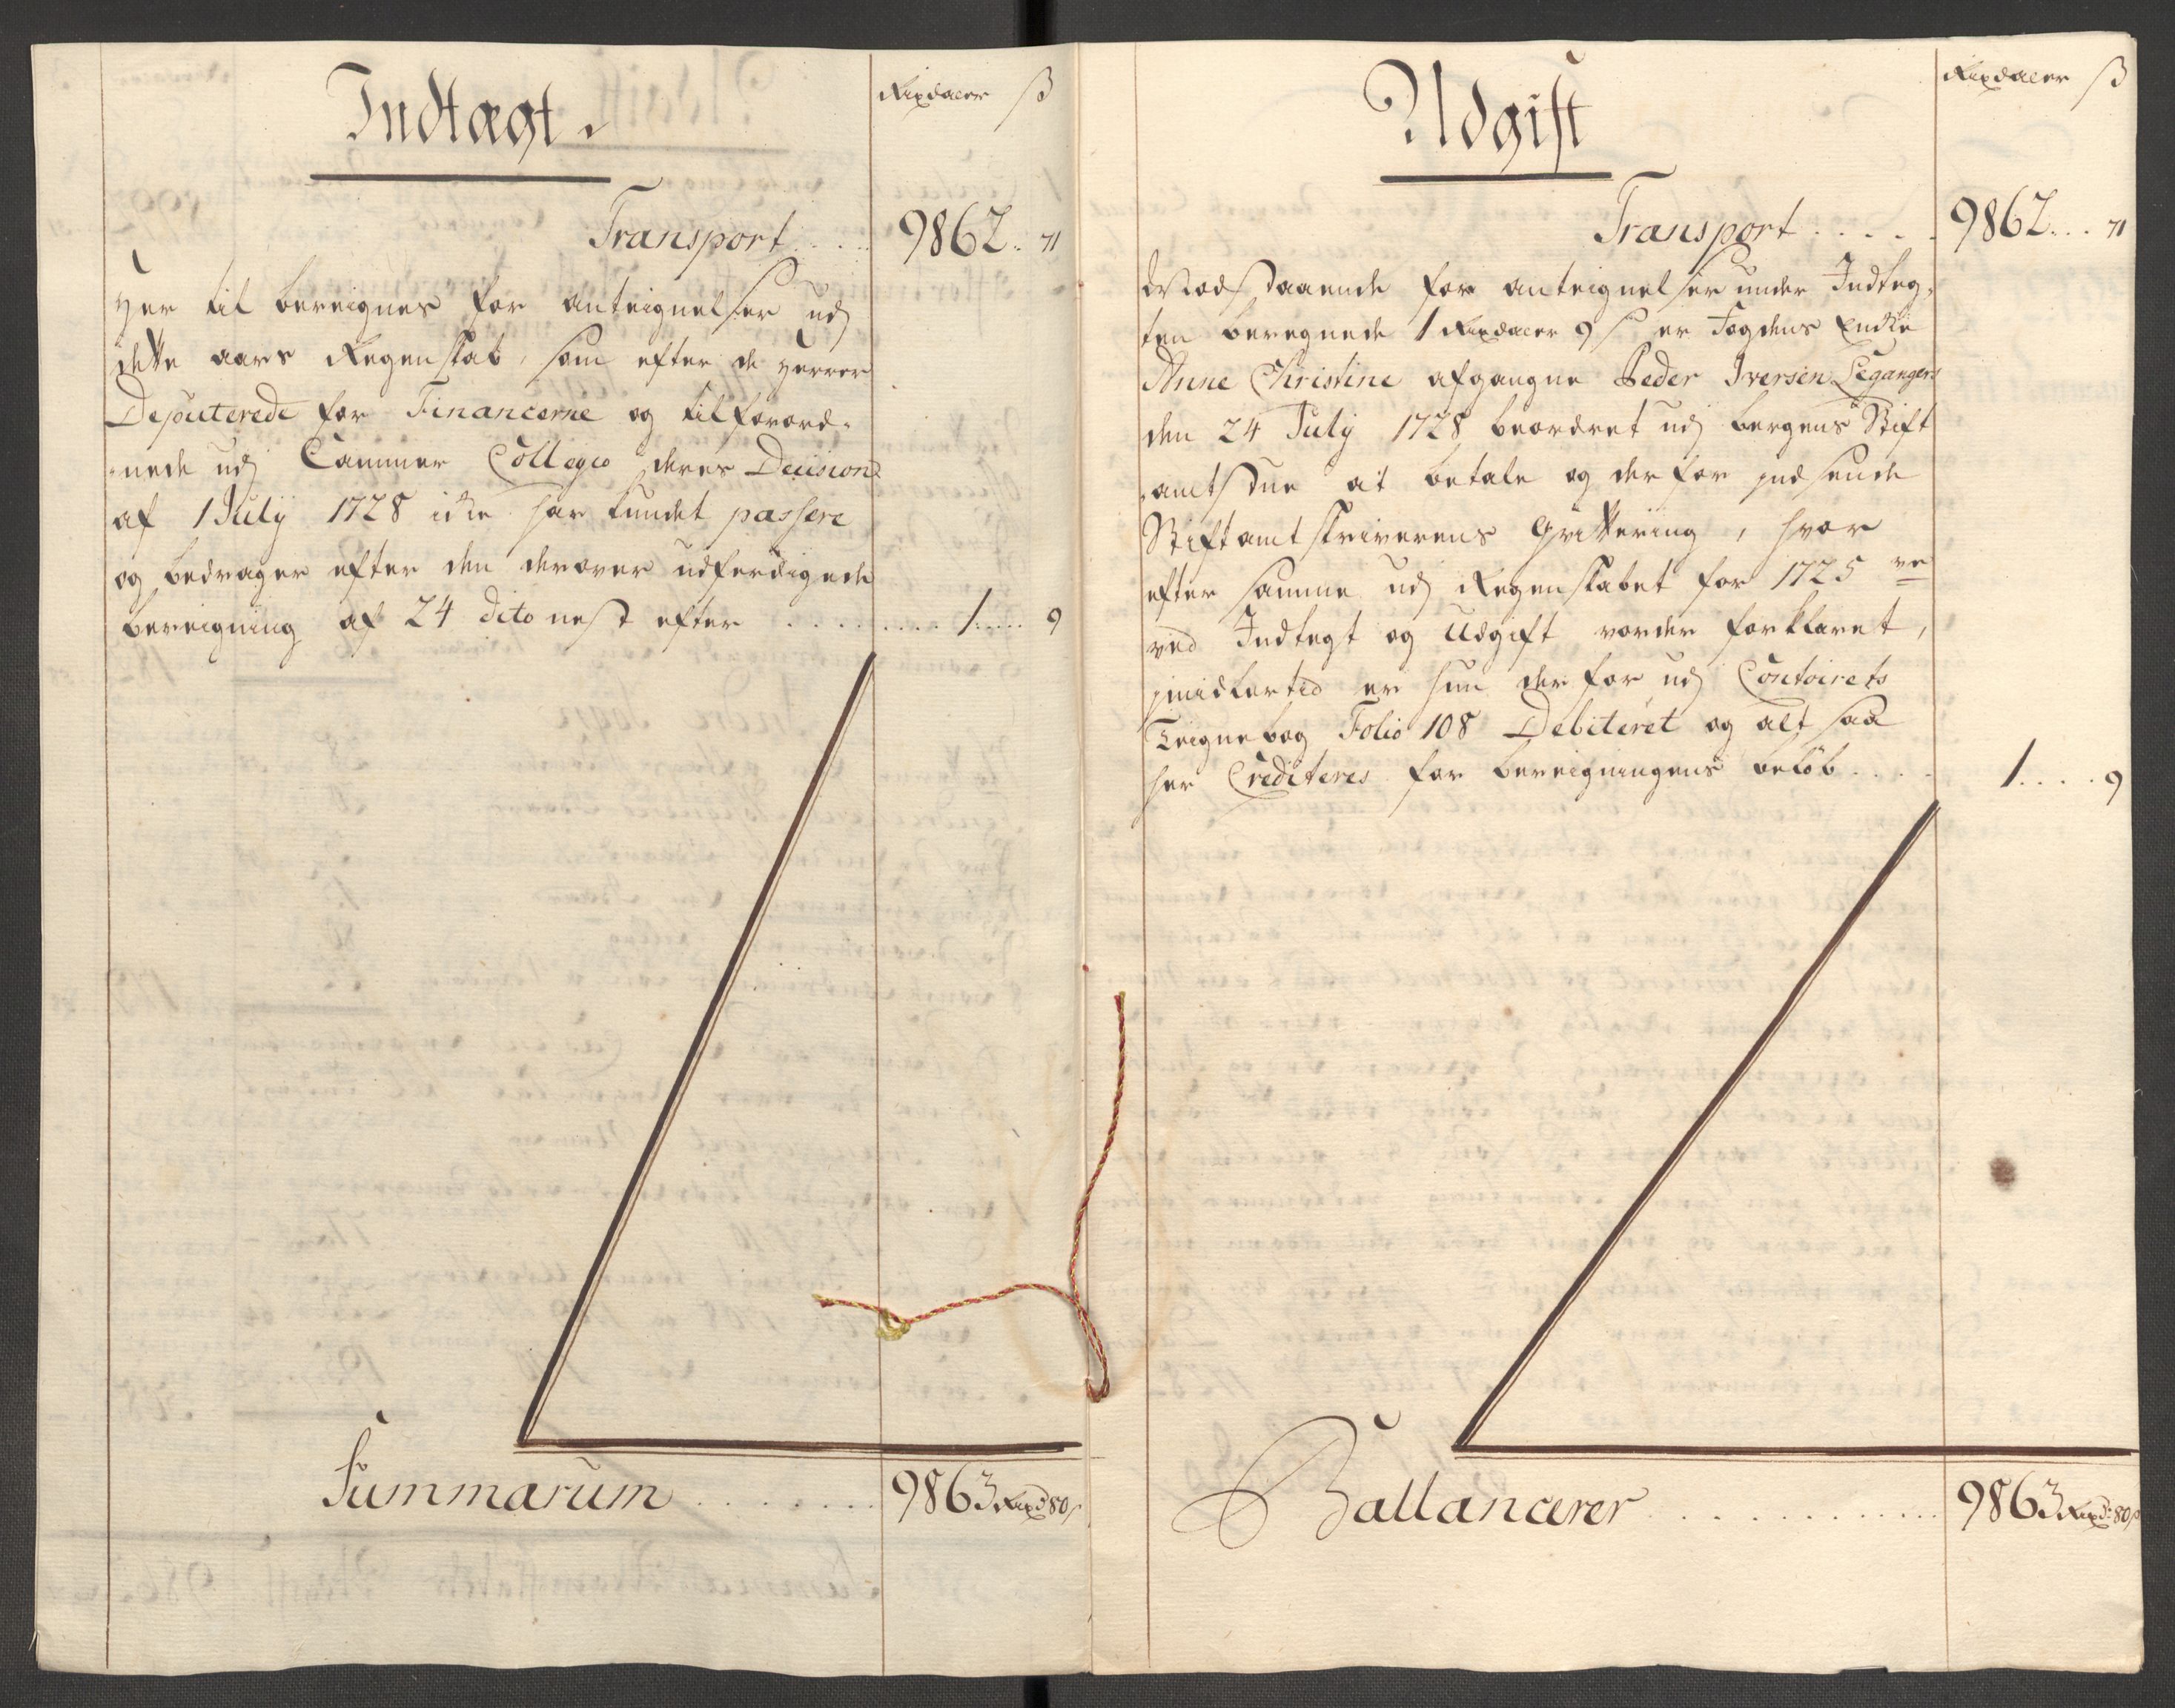 Indtægt.
Rixdaler ß
Transport .... 9862. 71
Her til bereignes for anteignelser udj
dette aars Regenskab, som efter de Herrer
Deputerede for Financerne og tilforord-
nede udj Cammer Collegio deres Decision
af 1 July 1728 icke har kundet passere
og bedrager efter den derover udferdigede
bereigning af 24 dito nest efter ........ 1.... 9
Summarum ....... 9863 Rixd 80 ß
Udgift
Rixdaler ß
Transport ..... 9862... 71
Modstaaende for anteignelser under Indteg-
ten beregnede 1 Rixdaler 9 ß er Fogdens Encke
Anne Christine afgangne Peder Iversen Legangers
den 24 July 1728 beordret udj Bergens Stift
amtstue at betale og derfor indsende
Stiftamtskriverens Qvittering, hvor
efter samme udj Regenskabet for 1725
ved Indtegt og Udgift vorder forklaret,
imidlertid er hun derfor udj Contoirets
Teignebog Folio 108 Debiteret og alt saa
her Crediteres for bereigningens beløb .... 1.... 9
Ballancerer ............ 9863 Rixd: 80 ß